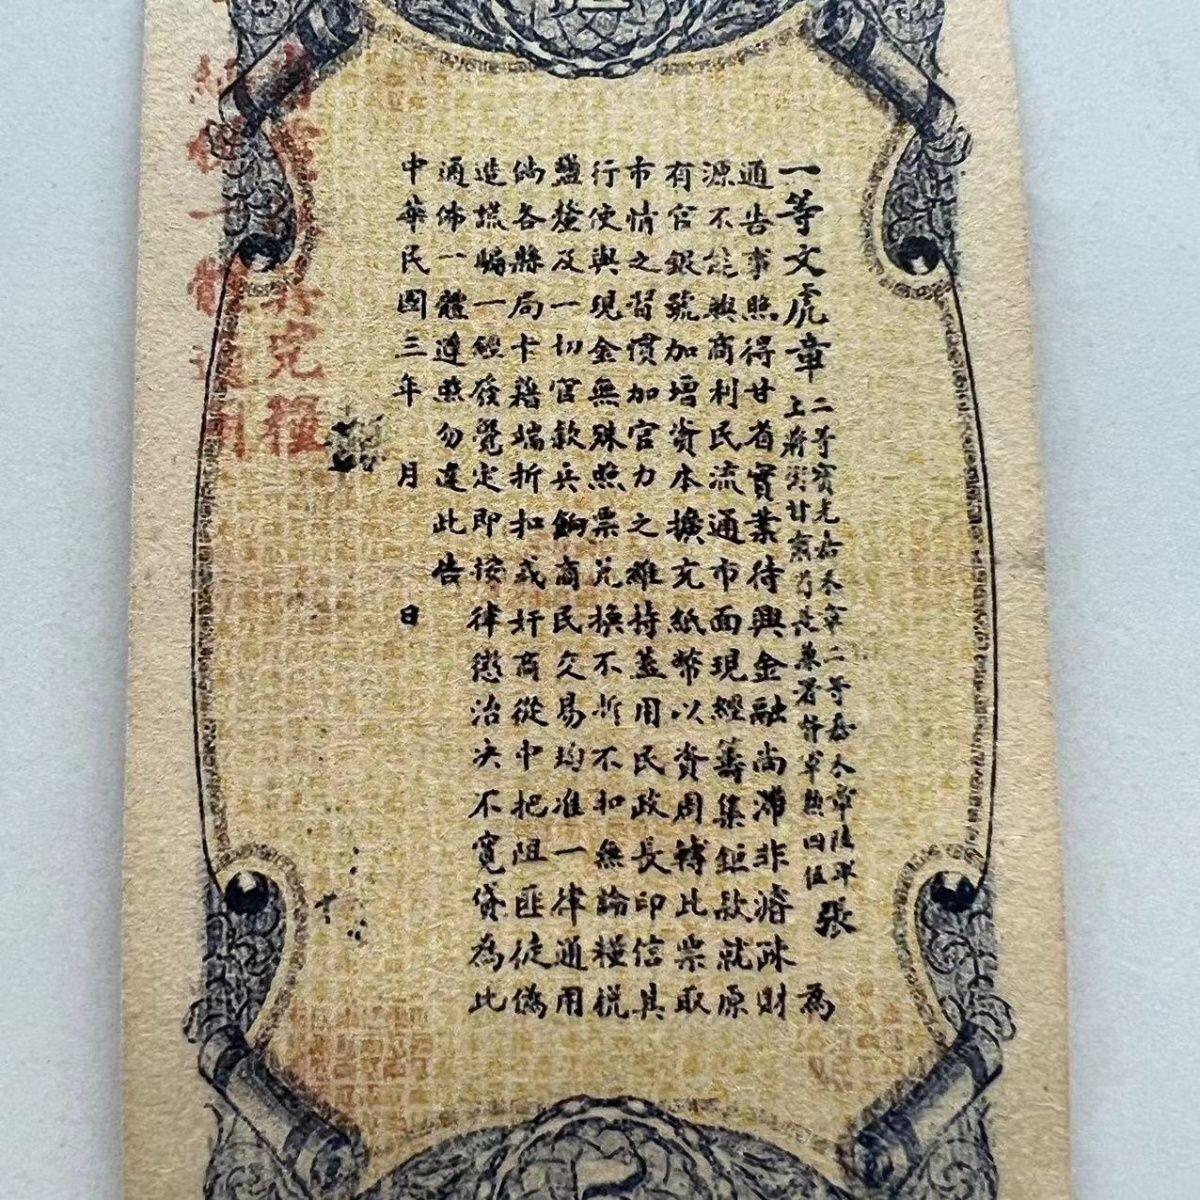 一等文虎章
二等寶光嘉禾章二等嘉禾章陸軍
上將銜甘肅 長兼署 軍 張 為
通告事照得甘省實業待興金融尚滯非濬疎財
源不能興商利民流通市面現經籌集鉅款就原
有官銀號加增資本擴充紙幣以資周轉此票取
市情之習慣加官力之維持蓋用民政長印信其
行使與現金無殊照票兌換不折不扣無論糧稅
鹽釐及一切官款兵餉商民交易均准一律通用
倘各縣局卡藉端折扣或奸商從中把阻匪徒偽
造謊騙一經發覺定即按律懲治決不寬貸為此
通佈一體遵照勿違此告
中華民國三年 月 日
完糧
納 一體通用